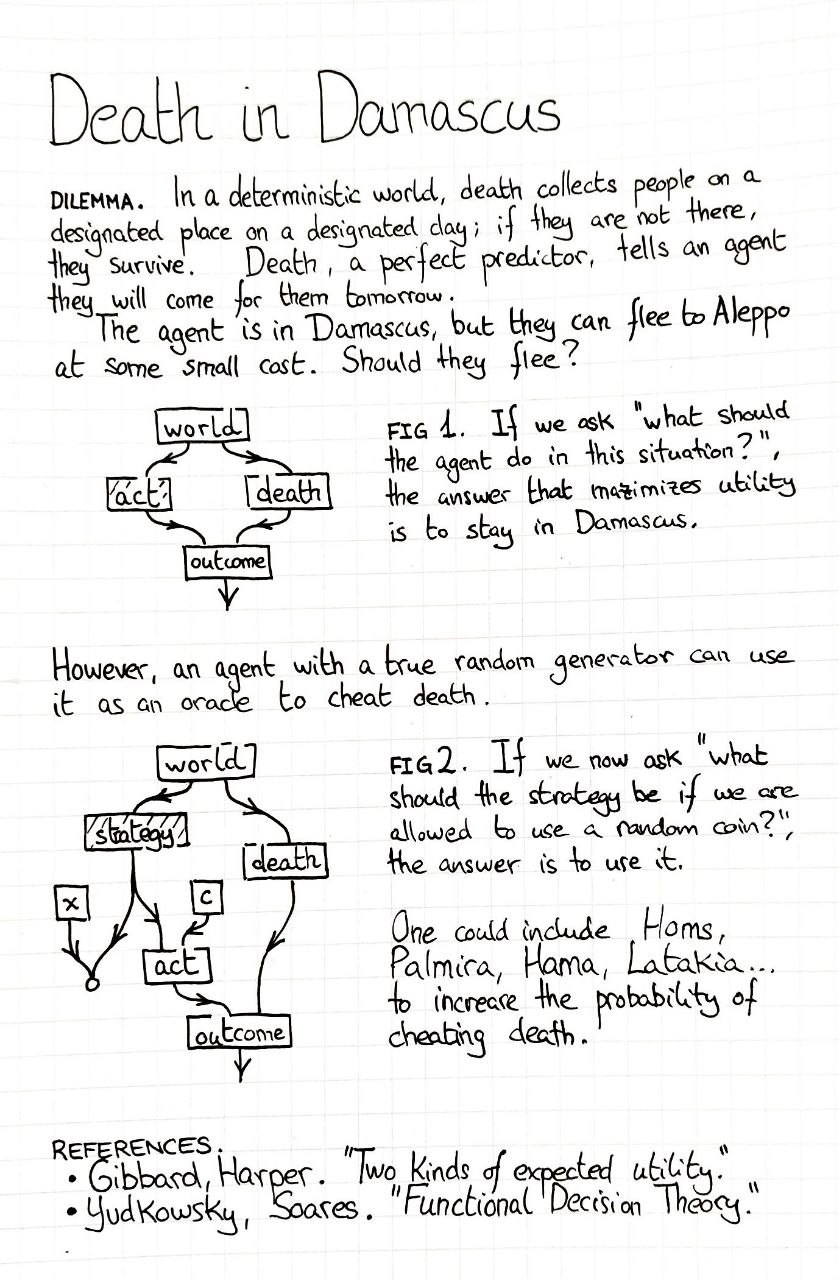 Death in Damascus
DILEMMA. In a deterministic world, death collects people on a
designated place on a designated day; if they are not there,
they survive. Death, a perfect predictor, tells an agent
they will come for them tomorrow.
The agent is in Damascus, but they can flee to Aleppo
at some small cost. Should they flee?
world
act
death
outcome
FIG 1. If we ask "what should
the agent do in this situation?",
the answer that maximizes utility
is to stay in Damascus.
However, an agent with a true random generator can use
it as an oracle to cheat death.
world
strategy
death
x
c
act
outcome
FIG 2. If we now ask "what
should the strategy be if we are
allowed to use a random coin?",
the answer is to use it.
One could include Homs,
Palmira, Hama, Latakia...
to increase the probability of
cheating death.
REFERENCES.
• Gibbard, Harper. "Two kinds of expected utility."
• Yudkowsky, Soares. "Functional Decision Theory."